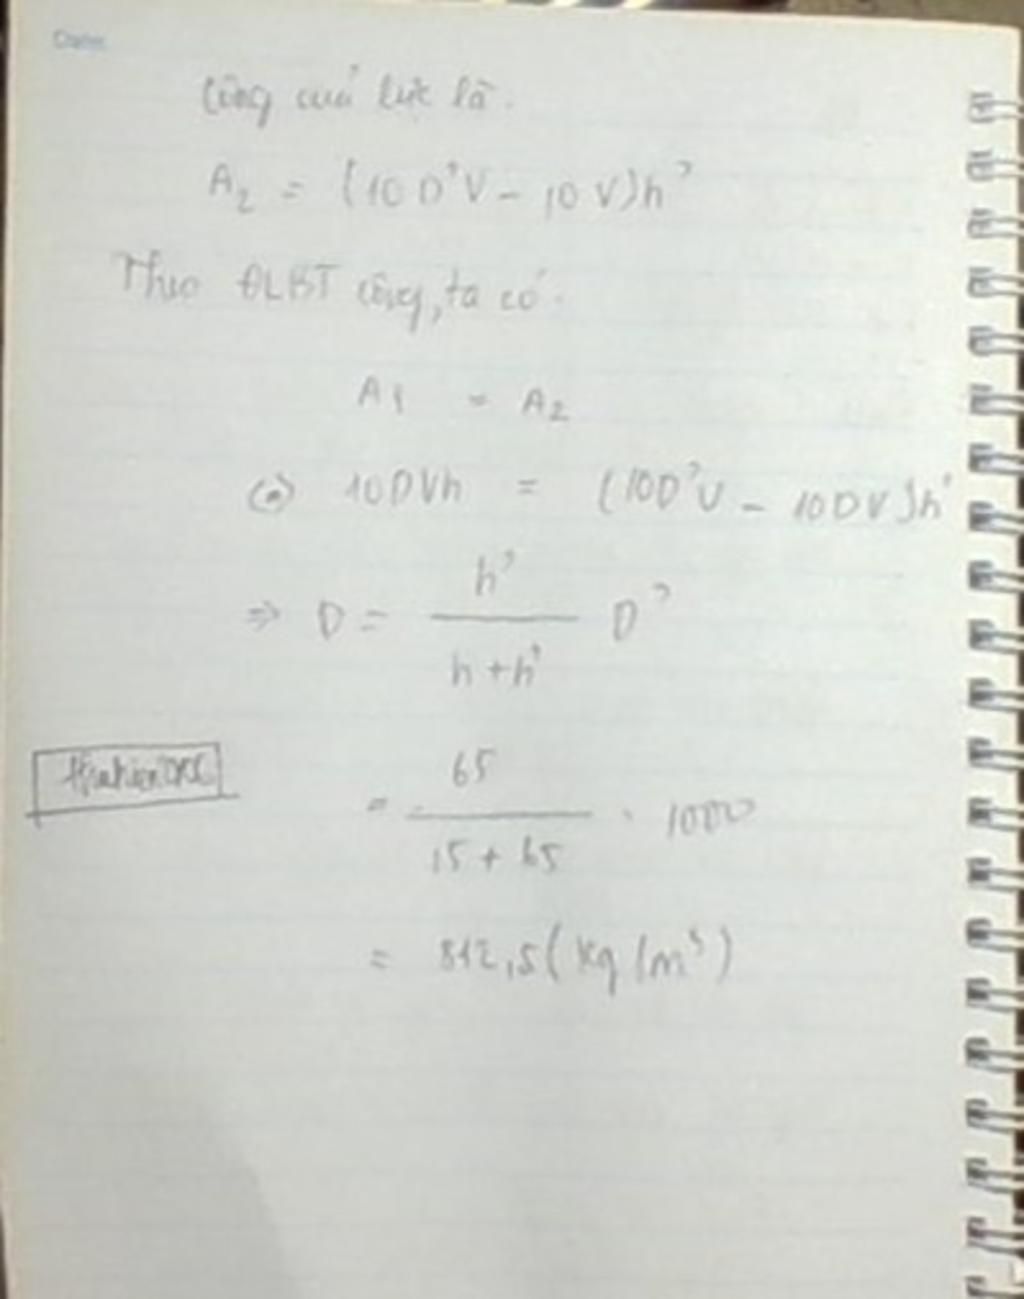 Công cuả lực là.
A₂ = (10 D'V - 10 V)h'
Theo ĐLBT công, ta có.
A₁ = A₂
(=) 10DVh = (10D'V - 10DV)h'
=> D = h' / (h + h') D'
= 65 / (15 + 65) . 1000
= 812,5 (kg/m³)